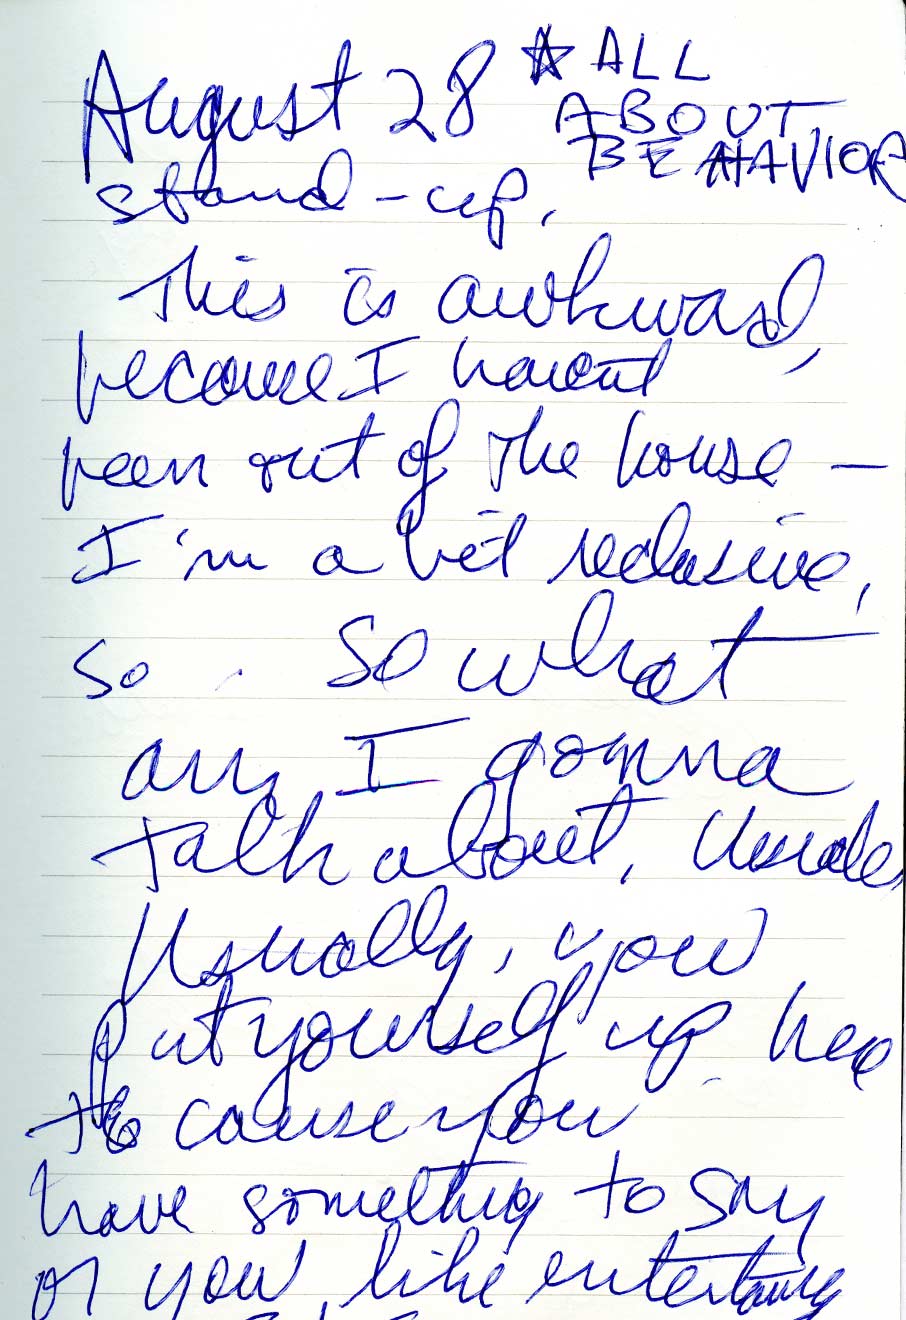 August 28 ☆ ALL
ABOUT
BEHAVIOR
stand-up.
This is awkward,
because I havent
been out of the house —
I'm a bit reclusive,
so. So what
am I gonna
talk about. Usuale
Usually, you
put yourself up here
cause you
have something to say
or you, like entertaing